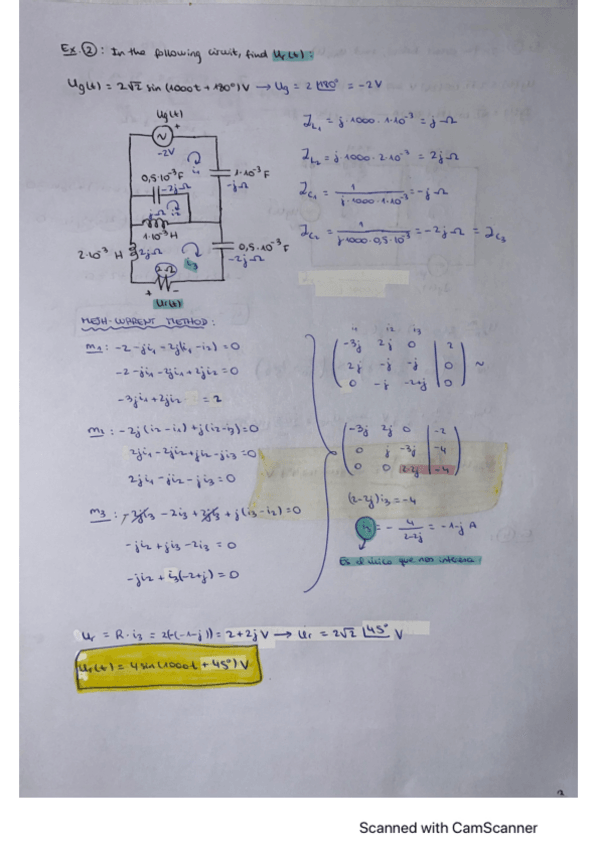 Ex ②: In the following circuit, find Ur(t):
Ug(t) = 2√2 sin (1000t + 180°) V → Ug = 2 |180° = -2V
Ug(t)
+
~
-2V
i1
0,5·10⁻³F
-2jΩ
1·10⁻³F
-jΩ
jΩ
i2
1·10⁻³H
2·10⁻³ H
2jΩ
i3
0,5·10⁻³F
-2jΩ
2Ω
+ -
Ur(t)
ZL1 = j·1000·1·10⁻³ = jΩ
ZL2 = j·1000·2·10⁻³ = 2jΩ
ZC1 = 1 / j·1000·1·10⁻³ = -jΩ
ZC2 = 1 / j·1000·0,5·10⁻³ = -2jΩ = ZC3
MESH-CURRENT METHOD:
m1: -2 -ji1 -2j(i1-i2) = 0
-2 -ji1 -2ji1 + 2ji2 = 0
-3ji1 + 2ji2 = 2
m2: -2j(i2-i1) + j(i2-i3) = 0
2ji1 - 2ji2 + ji2 - ji3 = 0
2ji1 - ji2 - ji3 = 0
m3: -2ji3 - 2i3 + 2ji3 + j(i3-i2) = 0
-ji2 + ji3 - 2i3 = 0
-ji2 + i3(-2+j) = 0
i1 i2 i3
-3j 2j 0 | 2
2j -j -j | 0 ~
0 -j -2+j | 0
-3j 2j 0 | -2
0 j -3j | -4
0 0 2-2j | -4
(2-2j)i3 = -4
i3 = - 4 / 2-2j = -1-j A
Es el único que nos interesa
Ur = R·i3 = 2(-(-1-j)) = 2+2j V → Ur = 2√2 |45° V
Ur(t) = 4 sin(1000t + 45°) V
Scanned with CamScanner